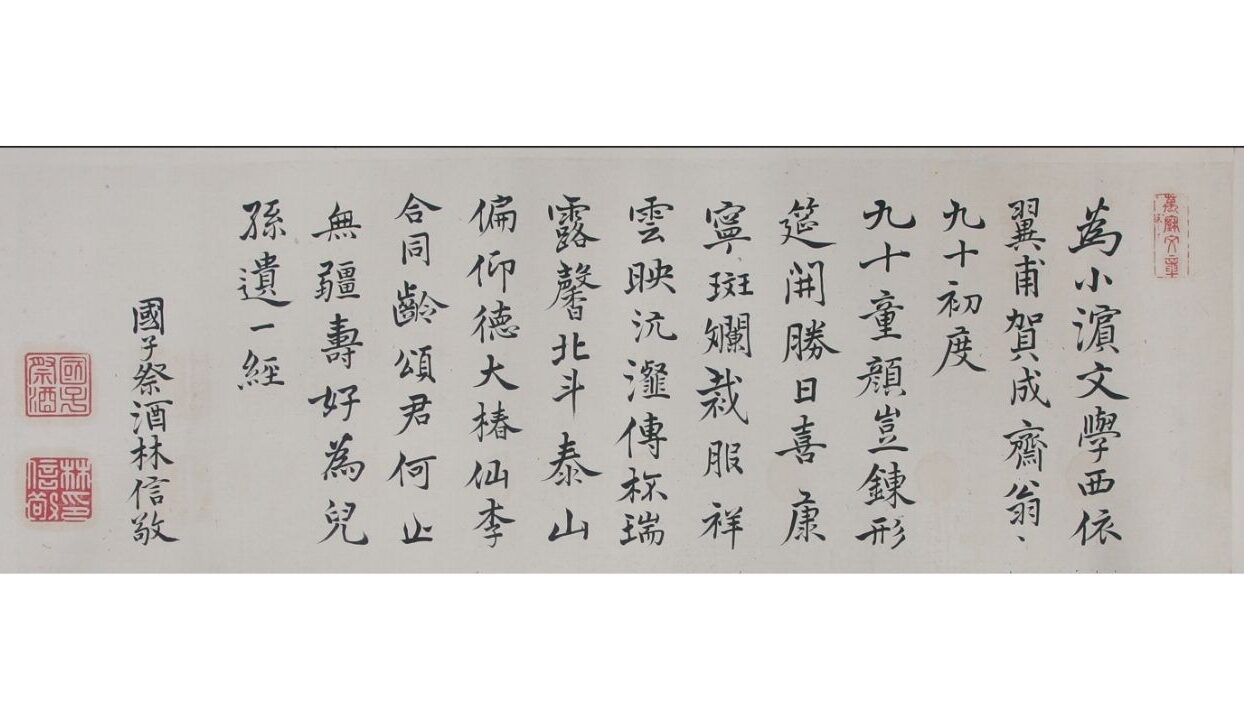 為小濱文學西依
翼甫賀成齋翁〻
九十初度
九十童顏豈鍊形
筵開勝日喜康
寧斑斕裁服祥
雲映沆瀣傳杯瑞
露馨北斗泰山
偏仰德大椿仙李
合同齡頌君何止
無疆壽好為兒
孫遺一經
國子祭酒林信敬
國子
祭酒
林印
信敬